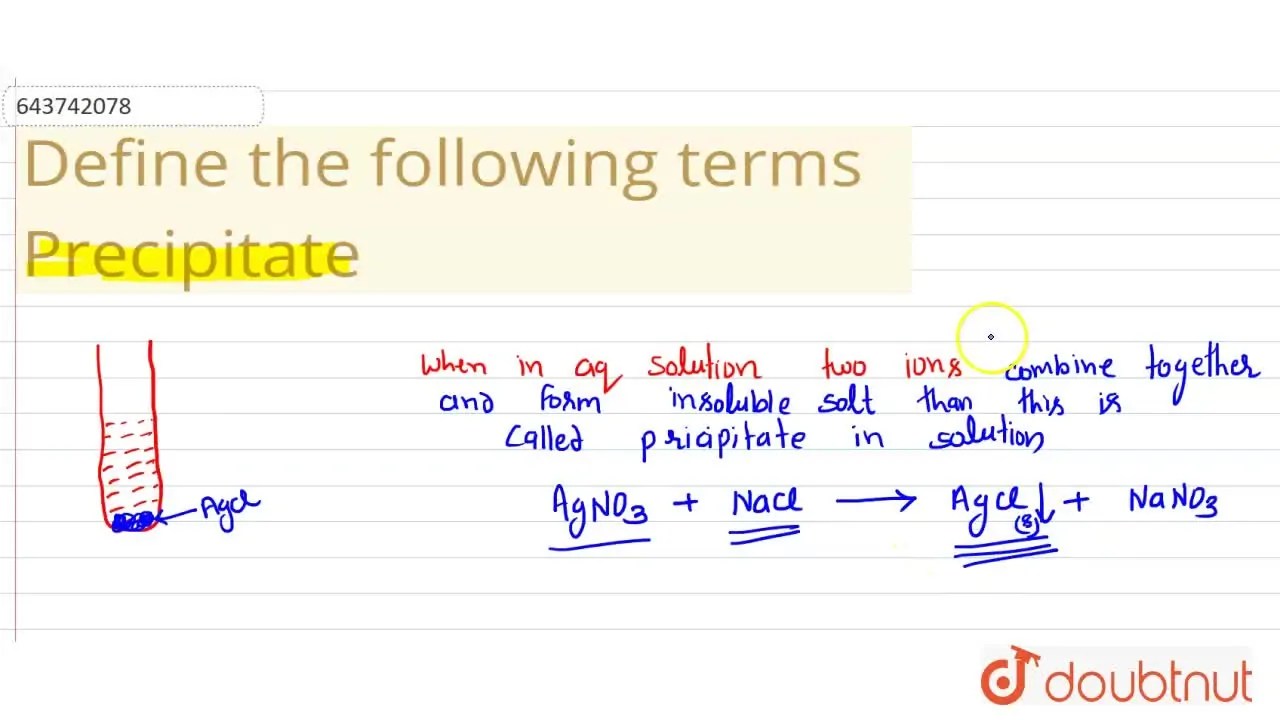 643742078
Define the following terms
Precipitate
when in aq solution two ions combine together
and form insoluble salt than this is
called pricipitate in solution
AgCl
AgNO3 + NaCl ⟶ AgCl(s)↓ + NaNO3
doubtnut